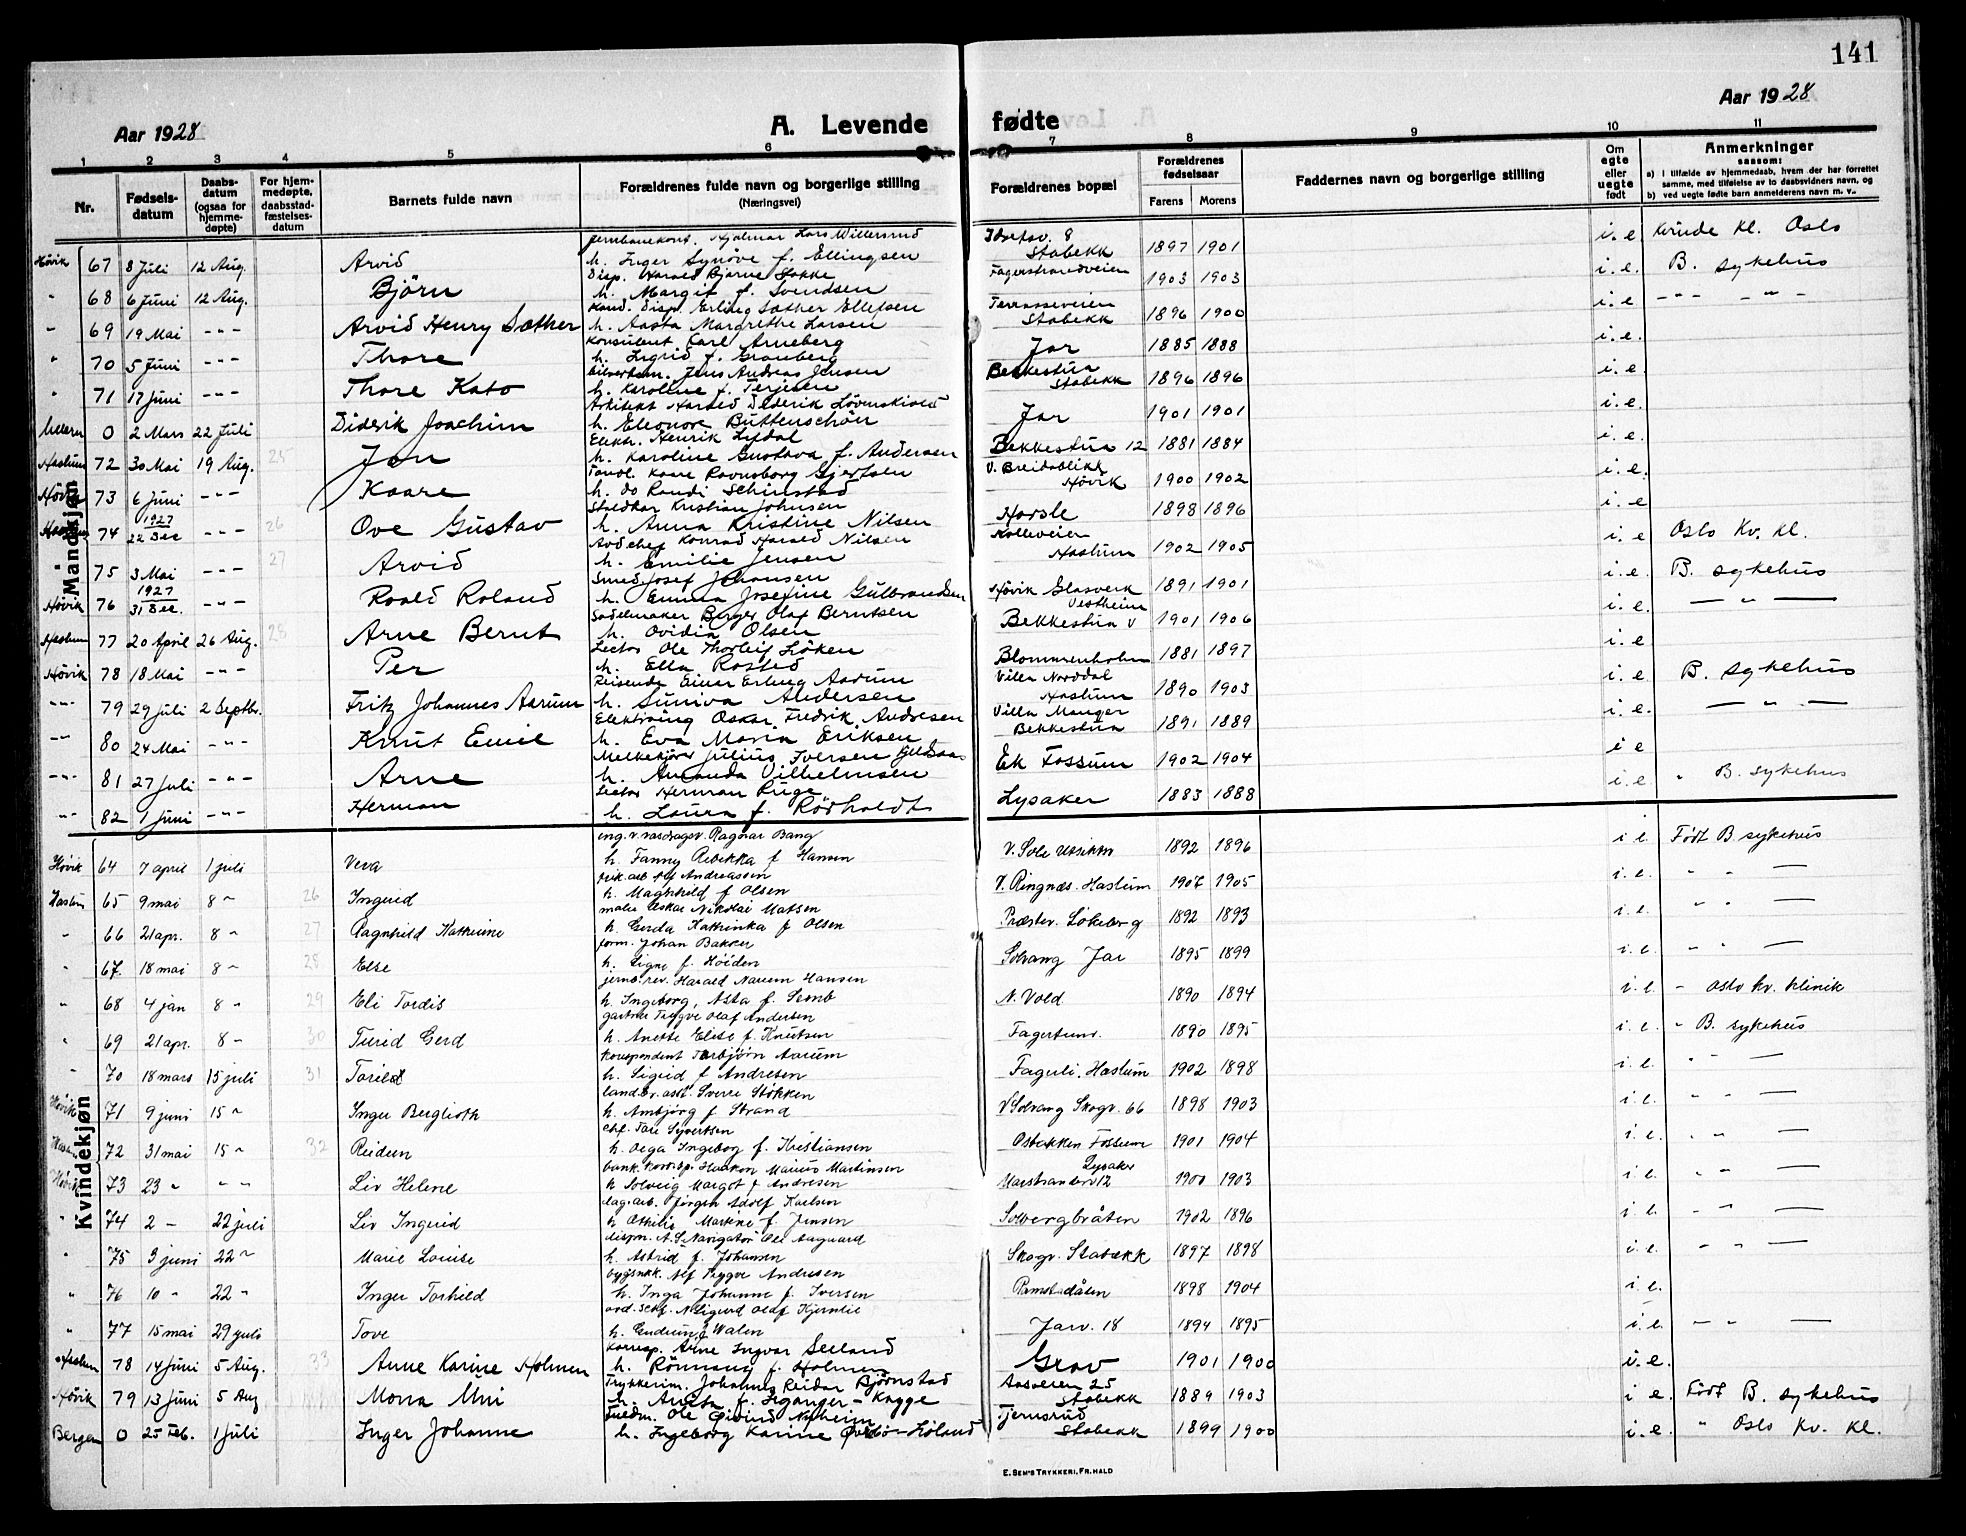 141
Aar 1928
A. Levende fødte
Aar 1928
1 2 3 4 5 6 7 8 9 10 11
Nr.
Fødsels-
datum
Daabs-
datum
(ogsaa for
hjemme-
døpte)
For hjem-
medøpte,
daabsstad-
fæstelses-
datum
Barnets fulde navn
Forældrenes fulde navn og borgerlige stilling
(Næringsvei)
Forældrenes bopæl
Forældrenes
fødselsaar
Farens Morens
Faddernes navn og borgerlige stilling
Om
egte
eller
uegte
født
Anmerkninger
saasom:
a) i tilfælde av hjemmedaab, hvem der har forrettet
samme, med tilføielse av to daabsvidners navn, og
b) ved uegte fødte barn anmelderens navn m. v.
Mandkjøn
Høvik 67 8 Juli 12 Aug. Arvid
h. Inger Synöve f. Ellingsen
Stabekk 1897 1901 i. e. Kvinde kl. Oslo
" 68 6 Juni 12 Aug. Björn
Disp. Harald Bjarne Stokke
h. Margit f. Svendsen
Fagerstrandveien 1903 1903 i. e. B. sykehus
" 69 19 Mai - " - Arvid Henry Sæther
Disp. Erling Sæther Ellefsen
h. Aasta Margrethe Larsen
Terrasseveien
Stabekk 1896 1900 i. e - " - - " -
" 70 5 Juni - " - Thore
Konsulent Karl Arneberg
h. Ingrid f. Granberg
Jar 1885 1888 i. e.
" 71 17 Juni - " - Thore Kato
Jens Andreas Jensen
h. Karoline f. Terjesen
Bekkestua
Stabekk 1896 1896 i. e.
Ullern 0 2 Mars 22 Juli Diderik Joachim
Arkitekt Harald Dederik Lövenskiold
h. Eleonore Buttenschön
Jar 1901 1901 i. e.
Haslum 72 30 Mai 19 Aug. 25 Jan
Elektr. Henrik Lysdal
h. Karoline Gustava f. Andersen
Bekkestua 12 1881 1884 i. e.
Høvik 73 6 Juni - " - Kaare
Kaare Ravnsborg Gjertsen
h. do Randi Schinstad
V. Breidablikk
Høvik 1900 1902 i. e.
Haslum 74 1927
22 Dec - " - 26 Ove Gustav
Kristian Johnsen
h. Anna Kristine Nilsen
Horsle 1898 1896 i. e
75 3 Mai - " - 27 Arvid
Avd chef Konrad Harald Nilsen
h. Emilie Jensen
Kolleveien
Haslum 1902 1905 i. e Oslo Kv. kl.
Høvik 76 1927
31 Dec. - " - Roald Roland
Smed Josef Johansen
h. Emma Josefine Gulbrandsen
Høvik Glasverk 1891 1901 i. e. B. sykehus
Haslum 77 20 April 26 Aug. 28 Arne Bernt
Sadelmaker Birger Olaf Berntsen
h. Ovidia Olsen
Vestheim
Bekkestua v 1901 1906 i. e. - " -
Høvik 78 18 Mai - " - Per
Lector Ole Thorleif Löken
h. Ella Rosted
Blommenholm 1881 1897 i. e.
- " - 79 29 Juli 2 Septbr. Fritz Johannes Aarum
Reisende Einar Erling Aarum
h. Suniva Andersen
Villa Norddal
Haslum 1890 1903 i. e B. sykehus
- " - 80 24 Mai - " - Knut Emil
Oskar Fredrik Andresen
h. Eva Maria Eriksen
Villa Manger
Bekkestua 1891 1889 i. e. - " -
- " - 81 27 Juli - " - Arne
Melkekjører Julius Iversen
h. Amanda Vilhelmsen
Ek Fossum 1902 1904 i e
- " - 82 1 Juni - " - Herman
Lector Herman Ruge
h. Laura f. Rödholdt
Lysaker 1883 1888 i e " B. sykehus
Kvindekjøn
Høvik 64 7 april 1 juli Vera
ing. v. vasdragsv. Ragnar Bang
h. Fanny Rebekka f Hansen
V. Sole 1892 1896 i e Født B sykehus
Haslum 65 9 mai 8 " 26 Ingrid
Andreassen
h. Magnhild f Olsen
V. Ringnæs. Haslum 1907 1905 i. e. " "
" 66 21 apr. 8 " 27 Ragnhild Kathrine
maler Oskar Nikolai Matsen
h. Gerda Kathinka f Olsen
Præstev. Lökeberg 1892 1893 i. e. " "
" 67. 18 mai 8 " 28 Else
form. Johan Bakken
h. Signe f. Höiden
Solvang Jar 1895 1899 i. e. " "
" 68 4 jan 8 " 29 Eli Tordis
jernb. rev. Harald Narum Hansen
h. Ingeborg, Asta f. Semb
N. Vold 1890 1894 i. e. " Oslo kv. klinik
" 69 21 apr. 8 " 30 Turid Gerd
gartner Trygve Olaf Andersen
h. Anette Elise f. Knutsen
Fagertun. 1890 1895 i. e. " B. sykehus
" 70 18 mars 15 juli 31 Torild
Korrespondent Torbjörn Aarum
h. Sigrid f Andresen
Fagerli. Haslum 1902 1898 i. e. " "
Høvik 71 9 juni 15 " Inger Berglioth
landbr. ass. Sverre Stokken
h. Ambjørg f Strand
V Solvang Skogv. 66 1898 1903 i. e. " "
Haslum 72 31 mai 15 " 32 Reidun
chf. Tore Syvertsen
h. Olga Ingeborg f. Kristiansen
Osbakken Fossum 1901 1904 i. e. " "
Høvik 73 23 " " " Liv Helene
bank korresp. Haakon Marius Martinsen
h Solveig Margot f Andresen
Lysaker
Marstrandv. 12 1900 1903 i. e. " "
" 74 2 " 22 juli Liv Ingrid
dag. arb. Jörgen Adolf Karlsen
h Othilie Martine f Jensen
Solbergbråten 1902 1896 i. e. " "
" 75 3 juni 22 " Marie Louise
dispon. A.S. Navigator Ole Aagaard
h. Astrid f. Johansen
Skogv. Stabekk 1897 1898 i. e. " "
" 76 10 " 22 " Inger Torhild
bygsnekk. Alf Trygve Andresen
h. Inga Johanne f. Iversen
Ramstadålen 1898 1904 i. e.
" 77 15 mai 29 juli Tove
Sigurd Olaf Hjernlie
h. Gudrun f Walen
Jarv. 18 1894 1895 i. e. " "
Haslum 78 14 Juni 5 Aug. 33 Anne Karine Holmen
Korresp. Arne Ingvar Seeland
h. Rönnaug f. Holmen
Grav 1901 1900 i. e.
Høvik 79 13 Juni 5 Aug Mona Uni
Trykkerim. Johannes Reidar Björnstad
h. Anita f. Leganger - Kagge
Aasveien 25
Stabekk 1889 1903 i e. Født B. sykehus
Bergen 0 25 Feb. 1 Juli Inger Johanne
Fuldm. Ole Öivind Nyheim
h. Ingeborg Karine
Tjernsrud
Stabekk 1899 1900 i. e. " Oslo Kv. kl.
E. SEM'S TRYKKERI, FR. HALD